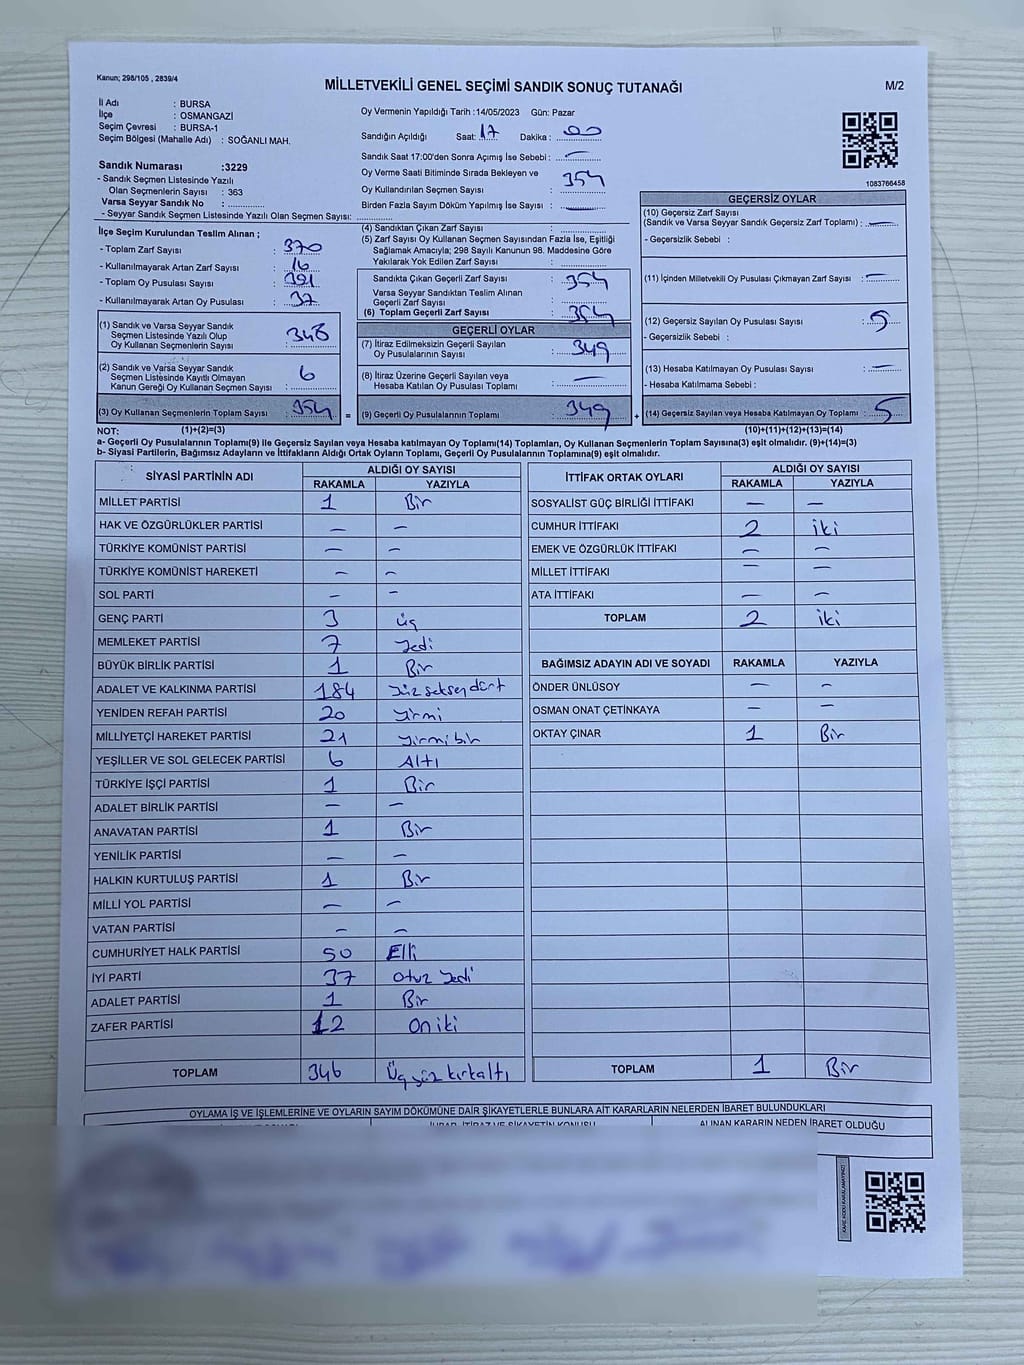 Kanun; 298/105 , 2839/4
MİLLETVEKİLİ GENEL SEÇİMİ SANDIK SONUÇ TUTANAĞI
M/2
İl Adı : BURSA
İlçe : OSMANGAZİ
Seçim Çevresi : BURSA-1
Seçim Bölgesi (Mahalle Adı) : SOĞANLI MAH.
Sandık Numarası :3229
- Sandık Seçmen Listesinde Yazılı
Olan Seçmenlerin Sayısı : 363
Varsa Seyyar Sandık No : ..............
- Seyyar Sandık Seçmen Listesinde Yazılı Olan Seçmen Sayısı: ..............
Oy Vermenin Yapıldığı Tarih :14/05/2023 Gün: Pazar
Sandığın Açıldığı Saat: 17 Dakika : 00
Sandık Saat 17:00'den Sonra Açımış İse Sebebi : —
Oy Verme Saati Bitiminde Sırada Bekleyen ve
Oy Kullandırılan Seçmen Sayısı : 354
Birden Fazla Sayım Döküm Yapılmış İse Sayısı : —
1083766458
İlçe Seçim Kurulundan Teslim Alınan ;
- Toplam Zarf Sayısı : 370
- Kullanılmayarak Artan Zarf Sayısı : 16
- Toplam Oy Pusulası : 391
- Kullanılmayarak Artan Oy Pusulası : 37
(1) Sandık ve Varsa Seyyar Sandık
Seçmen Listesinde Yazılı Olup
Oy Kullanan Seçmenlerin Sayısı : 348
(2) Sandık ve Varsa Seyyar Sandık
Seçmen Listesinde Kayıtlı Olmayan
Kanun Gereği Oy Kullanan Seçmen Sayısı : 6
(3) Oy Kullanan Seçmenlerin Toplam Sayısı : 354 =
(4) Sandıktan Çıkan Zarf Sayısı :
(5) Zarf Sayısı Oy Kullanan Seçmen Sayısından Fazla İse, Eşitliği
Sağlamak Amacıyla; 298 Sayılı Kanunun 98. Maddesine Göre
Yakılarak Yok Edilen Zarf Sayısı :
Sandıkta Çıkan Geçerli Zarf Sayısı : 354
Varsa Seyyar Sandıktan Teslim Alınan
Geçerli Zarf Sayısı :
(6) Toplam Geçerli Zarf Sayısı : 354
GEÇERLİ OYLAR
(7) İtiraz Edilmeksizin Geçerli Sayılan
Oy Pusulalarının Sayısı : 349
(8) İtiraz Üzerine Geçerli Sayılan veya
Hesaba Katılan Oy Pusulası Toplamı : —
(9) Geçerli Oy Pusulalarının Toplamı : 349 +
GEÇERSİZ OYLAR
(10) Geçersiz Zarf Sayısı
(Sandık ve Varsa Seyyar Sandık Geçersiz Zarf Toplamı) : —
- Geçersizlik Sebebi :
(11) İçinden Milletvekili Oy Pusulası Çıkmayan Zarf Sayısı : —
(12) Geçersiz Sayılan Oy Pusulası Sayısı : 5
- Geçersizlik Sebebi :
(13) Hesaba Katılmayan Oy Pusulası Sayısı : —
- Hesaba Katılmama Sebebi :
(14) Geçersiz Sayılan veya Hesaba Katılmayan Oy Toplamı : 5
NOT: (1)+(2)=(3) (10)+(11)+(12)+(13)=(14)
a- Geçerli Oy Pusulalarının Toplamı(9) ile Geçersiz Sayılan veya Hesaba katılmayan Oy Toplamı(14) Toplamları, Oy Kullanan Seçmenlerin Toplam Sayısına(3) eşit olmalıdır. (9)+(14)=(3)
b- Siyasi Partilerin, Bağımsız Adayların ve İttifakların Aldığı Ortak Oyların Toplamı, Geçerli Oy Pusulalarının Toplamına(9) eşit olmalıdır.
SİYASİ PARTİNİN ADI ALDIĞI OY SAYISI
RAKAMLA YAZIYLA
MİLLET PARTİSİ 1 Bir
HAK VE ÖZGÜRLÜKLER PARTİSİ — —
TÜRKİYE KOMÜNİST PARTİSİ — —
TÜRKİYE KOMÜNİST HAREKETİ — —
SOL PARTİ — —
GENÇ PARTİ 3 üç
MEMLEKET PARTİSİ 7 yedi
BÜYÜK BİRLİK PARTİSİ 1 Bir
ADALET VE KALKINMA PARTİSİ 184 yüz seksen dört
YENİDEN REFAH PARTİSİ 20 yirmi
MİLLİYETÇİ HAREKET PARTİSİ 21 yirmi bir
YEŞİLLER VE SOL GELECEK PARTİSİ 6 Altı
TÜRKİYE İŞÇİ PARTİSİ 1 Bir
ADALET BİRLİK PARTİSİ — —
ANAVATAN PARTİSİ 1 Bir
YENİLİK PARTİSİ — —
HALKIN KURTULUŞ PARTİSİ 1 Bir
MİLLİ YOL PARTİSİ — —
VATAN PARTİSİ — —
CUMHURİYET HALK PARTİSİ 50 Elli
İYİ PARTİ 37 otuz yedi
ADALET PARTİSİ 1 Bir
ZAFER PARTİSİ 12 on iki
TOPLAM 346 Üç yüz kırk altı
İTTİFAK ORTAK OYLARI ALDIĞI OY SAYISI
RAKAMLA YAZIYLA
SOSYALİST GÜÇ BİRLİĞİ İTTİFAKI — —
CUMHUR İTTİFAKI 2 iki
EMEK VE ÖZGÜRLÜK İTTİFAKI — —
MİLLET İTTİFAKI — —
ATA İTTİFAKI — —
TOPLAM 2 iki
BAĞIMSIZ ADAYIN ADI VE SOYADI RAKAMLA YAZIYLA
ÖNDER ÜNLÜSOY — —
OSMAN ONAT ÇETİNKAYA — —
OKTAY ÇINAR 1 Bir
TOPLAM 1 Bir
OYLAMA İŞ VE İŞLEMLERİNE VE OYLARIN SAYIM DÖKÜMÜNE DAİR ŞİKAYETLERLE BUNLARA AİT KARARLARIN NELERDEN İBARET BULUNDUKLARI
İHBAR, İTİRAZ VE ŞİKAYETİN KONUSU ALINAN KARARIN NEDEN İBARET OLDUĞU
KARE KODU KARALAMAYINIZ!